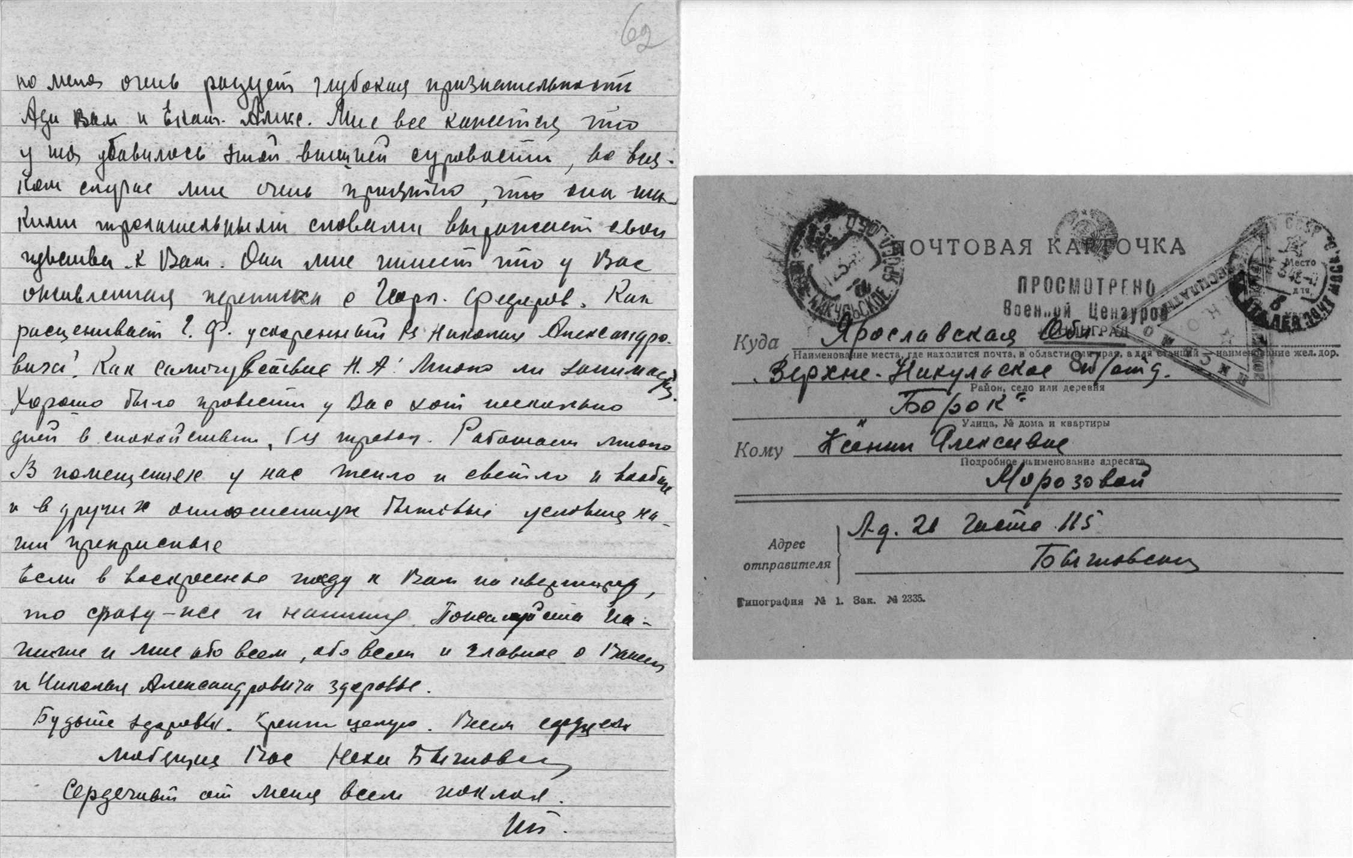 62
но меня очень радует глубокая признательность
Ади Вам и Екат. Алкс. Мне все кажется что
у нея убавилось этой внешней суровости, во вся-
ком случае мне очень приятно, что она та-
кими трогательными словами выражает свои
чувства к Вам. Она мне пишет что у Вас
оживленная переписка с Георг. Федоров. Как
расценивает Г. Ф. ускоренный Николая Александро-
вича? Как самочувствие Н. А? Много ли занимается
Хорошо было провести у Вас хоть несколько
дней в спокойствии, без тревог. Работаем много
В помещениях у нас тепло и светло и вообще
и в других отношениях бытовые условия на-
ши прекрасные
Если в воскресенье поеду к Вам на квартиру,
то сразу-же и напишу. Пожалуйста на-
пишите и мне обо всем, обо всем и главное о Вашем
и Николая Александровича здоровье.
Будьте здоровы. Крепко целую. Всем сердцем
любящая Вас
Сердечный от меня всем поклон.
ПОЧТОВАЯ КАРТОЧКА
ПРОСМОТРЕНО
Военной Цензурой
Куда Ярославская Обл
Наименование места, где находится почта, и области или края, а для станций — наименование жел. дор.
Верхне-Никульское п/отд.
Район, село или деревня
Борок"
Улица, № дома и квартиры
Кому Ксении Алексевне
Подробное наименование адресата
Морозовой
Адрес отправителя
Л-д. 21 часть 115
Типография № 1. Зак. № 2335.